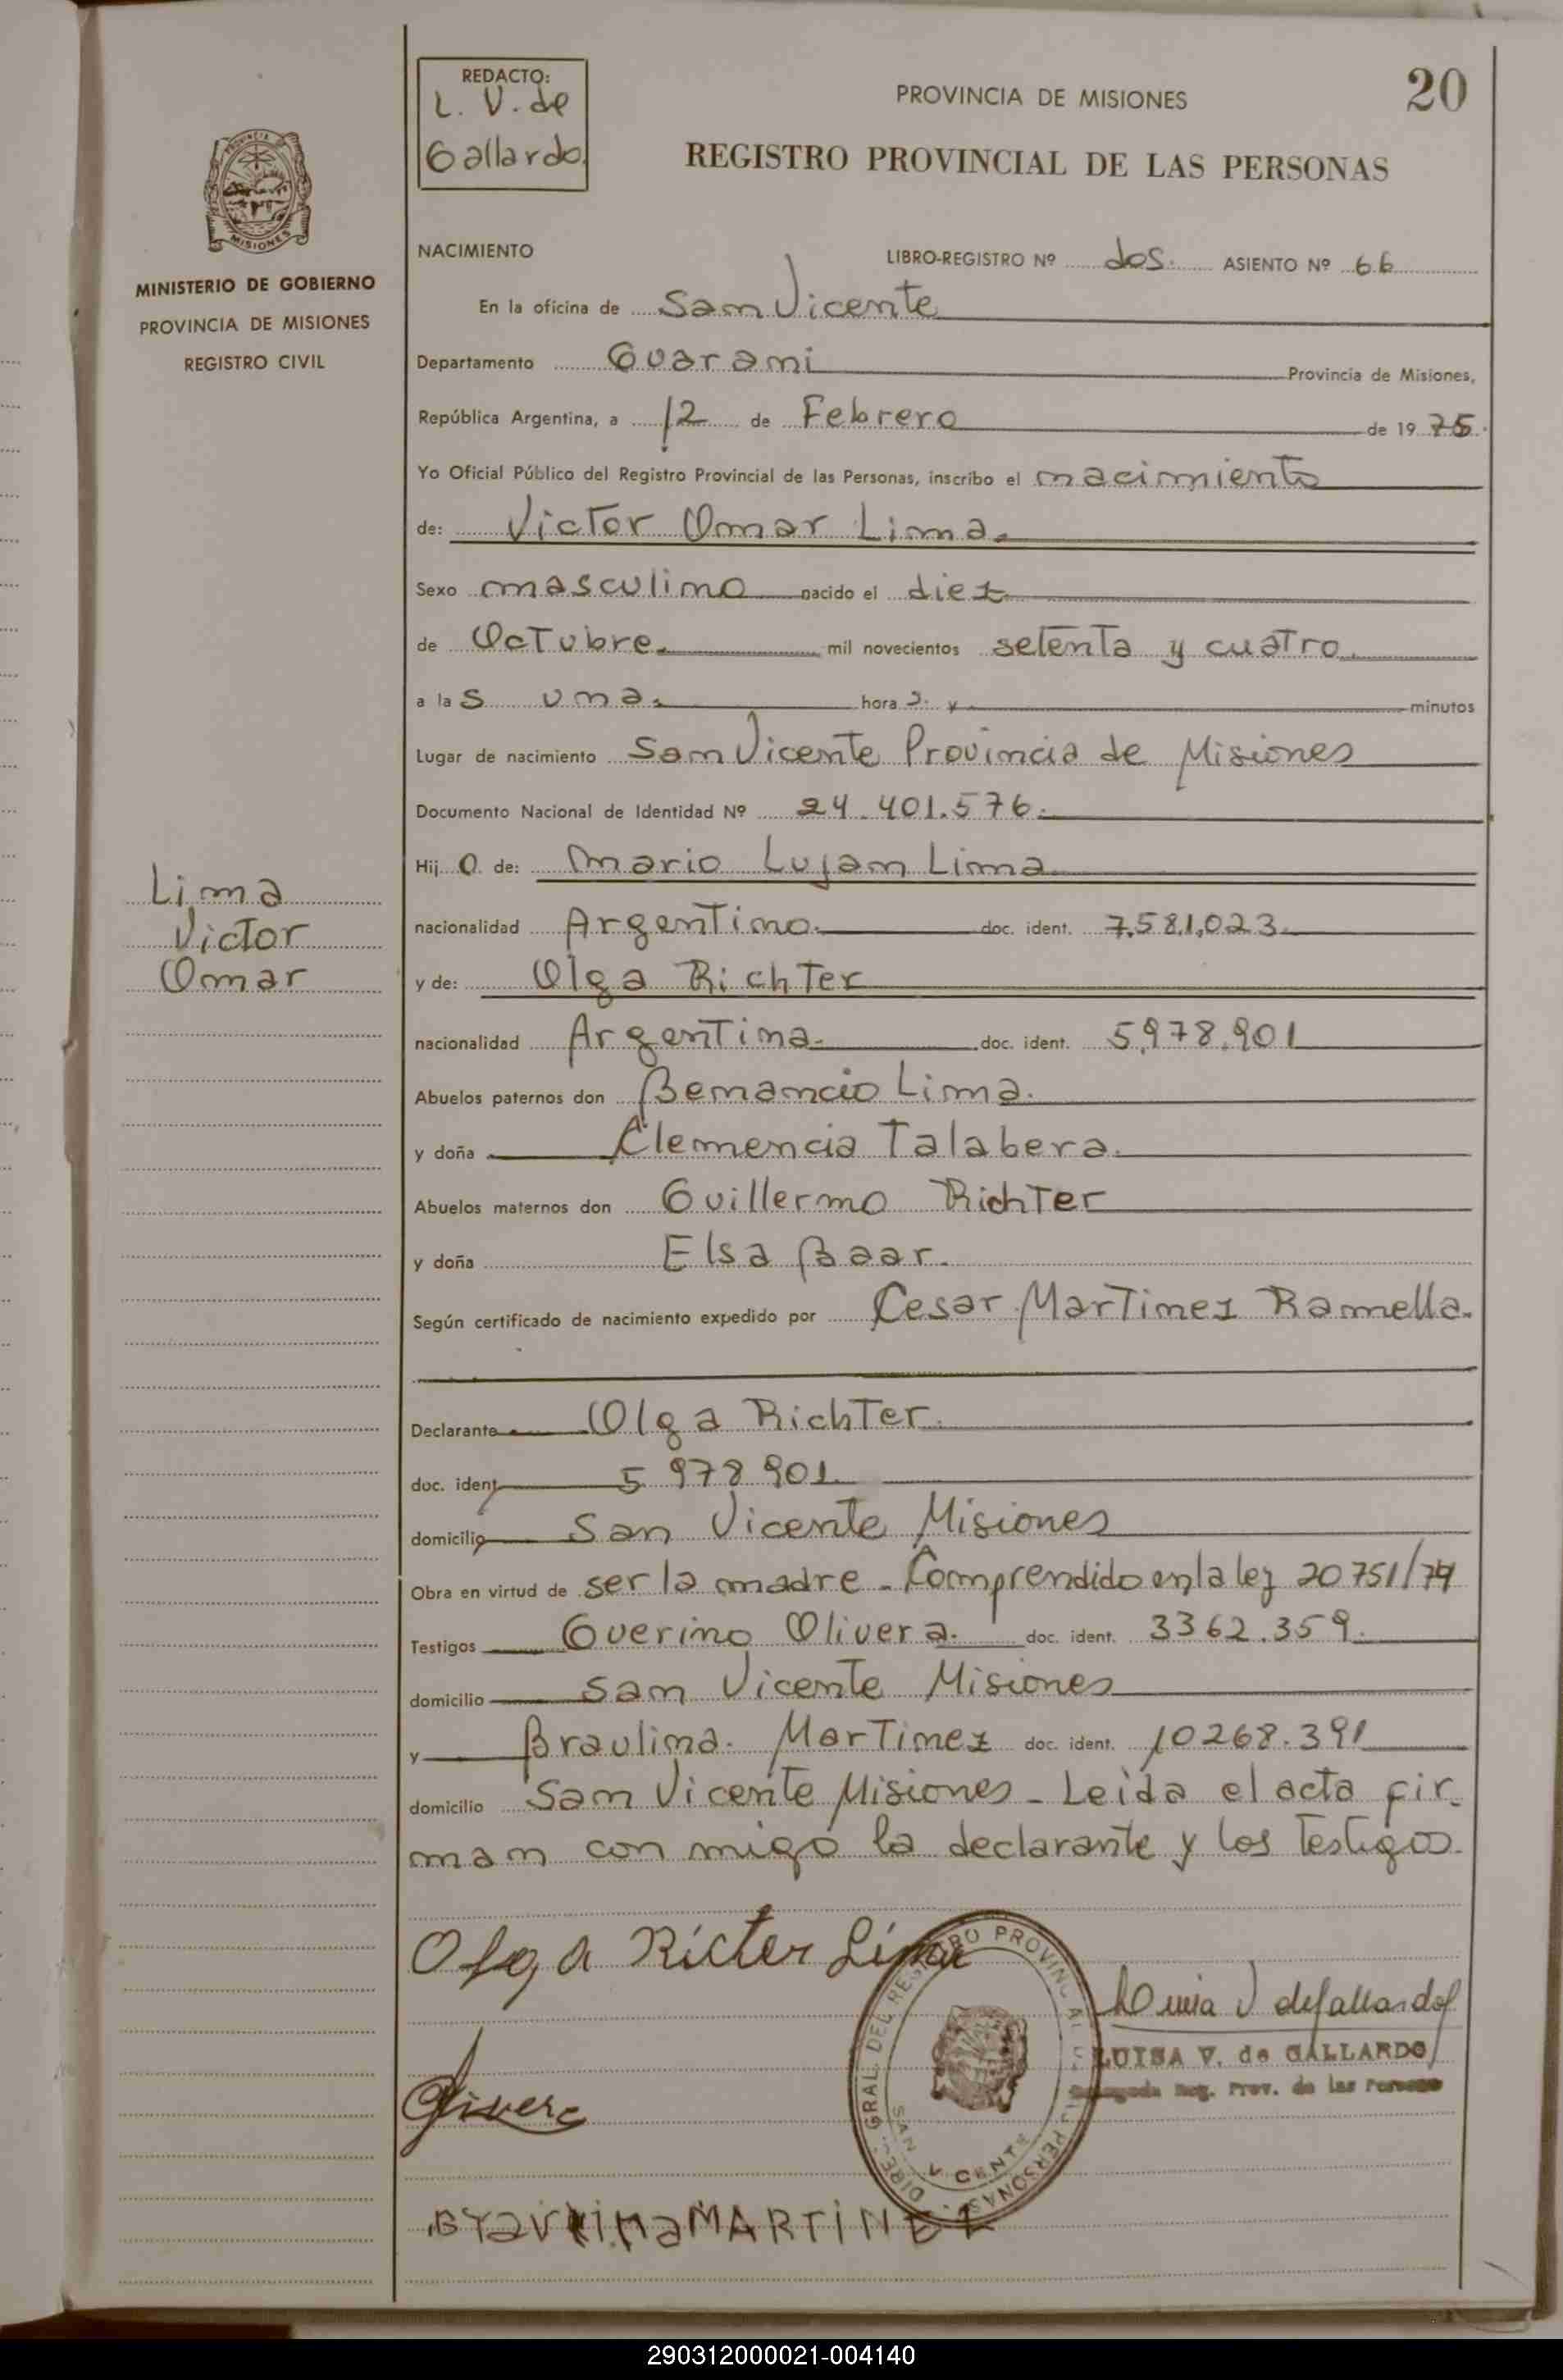 REDACTO:
L. V. de
Gallardo
PROVINCIA DE MISIONES
20
REGISTRO PROVINCIAL DE LAS PERSONAS
MISIONES
MINISTERIO DE GOBIERNO
PROVINCIA DE MISIONES
REGISTRO CIVIL
NACIMIENTO
LIBRO-REGISTRO Nº dos. ASIENTO Nº 66
En la oficina de San Vicente
Departamento Guarani Provincia de Misiones,
República Argentina, a 12 de Febrero de 19 75.
Yo Oficial Público del Registro Provincial de las Personas, inscribo el nacimiento
de: Victor Omar Lima.
Sexo masculino nacido el diez
de Octubre. mil novecientos setenta y cuatro.
a las una. horas. y minutos
Lugar de nacimiento San Vicente Provincia de Misiones
Documento Nacional de Identidad Nº 24.401.576.
Hijo de: Mario Lujan Lima
nacionalidad Argentino. doc. ident. 7.581.023
y de: Olga Richter
nacionalidad Argentina. doc. ident. 5.978.901
Abuelos paternos don Benancio Lima.
y doña Clemencia Talabera.
Abuelos maternos don Guillermo Richter
y doña Elsa Baar.
Según certificado de nacimiento expedido por Cesar Martinez Ramella.
Declarante Olga Richter.
doc. ident. 5.978.901.
domicilio San Vicente Misiones
Obra en virtud de ser la madre - Comprendido en la ley 20751/74
Testigos Guerino Olivera. doc. ident. 3362.359.
domicilio San Vicente Misiones
y Braulina. Martinez doc. ident. 10268.391
domicilio San Vicente Misiones - Leida el acta fir-
man con migo la declarante y los testigos.
Lima
Victor
Omar
Olga Ricter Lima
DIREC. GRAL. DEL REGISTRO PROVINCIAL DE LAS PERSONAS
SAN VICENTE
Luisa V de Gallardo
LUISA V. de GALLARDO
Delegada Reg. Prov. de las Personas
Olivera
Braulina MARTINEZ
290312000021-004140